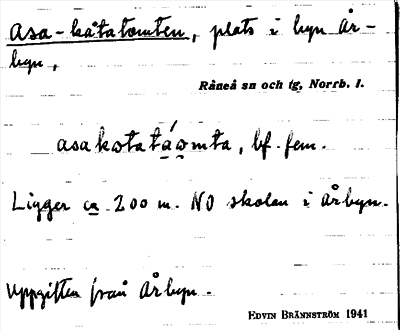 Asa-kåtatomten, plats i byn År-
byn,
Råneå sn och tg, Norrb. l.
asakotatáomta, bf. fem.
Ligger ca 200 m. NO skolan i Årbyn.
Uppgiften från Årbyn.
EDVIN BRÄNNSTRÖM 1941